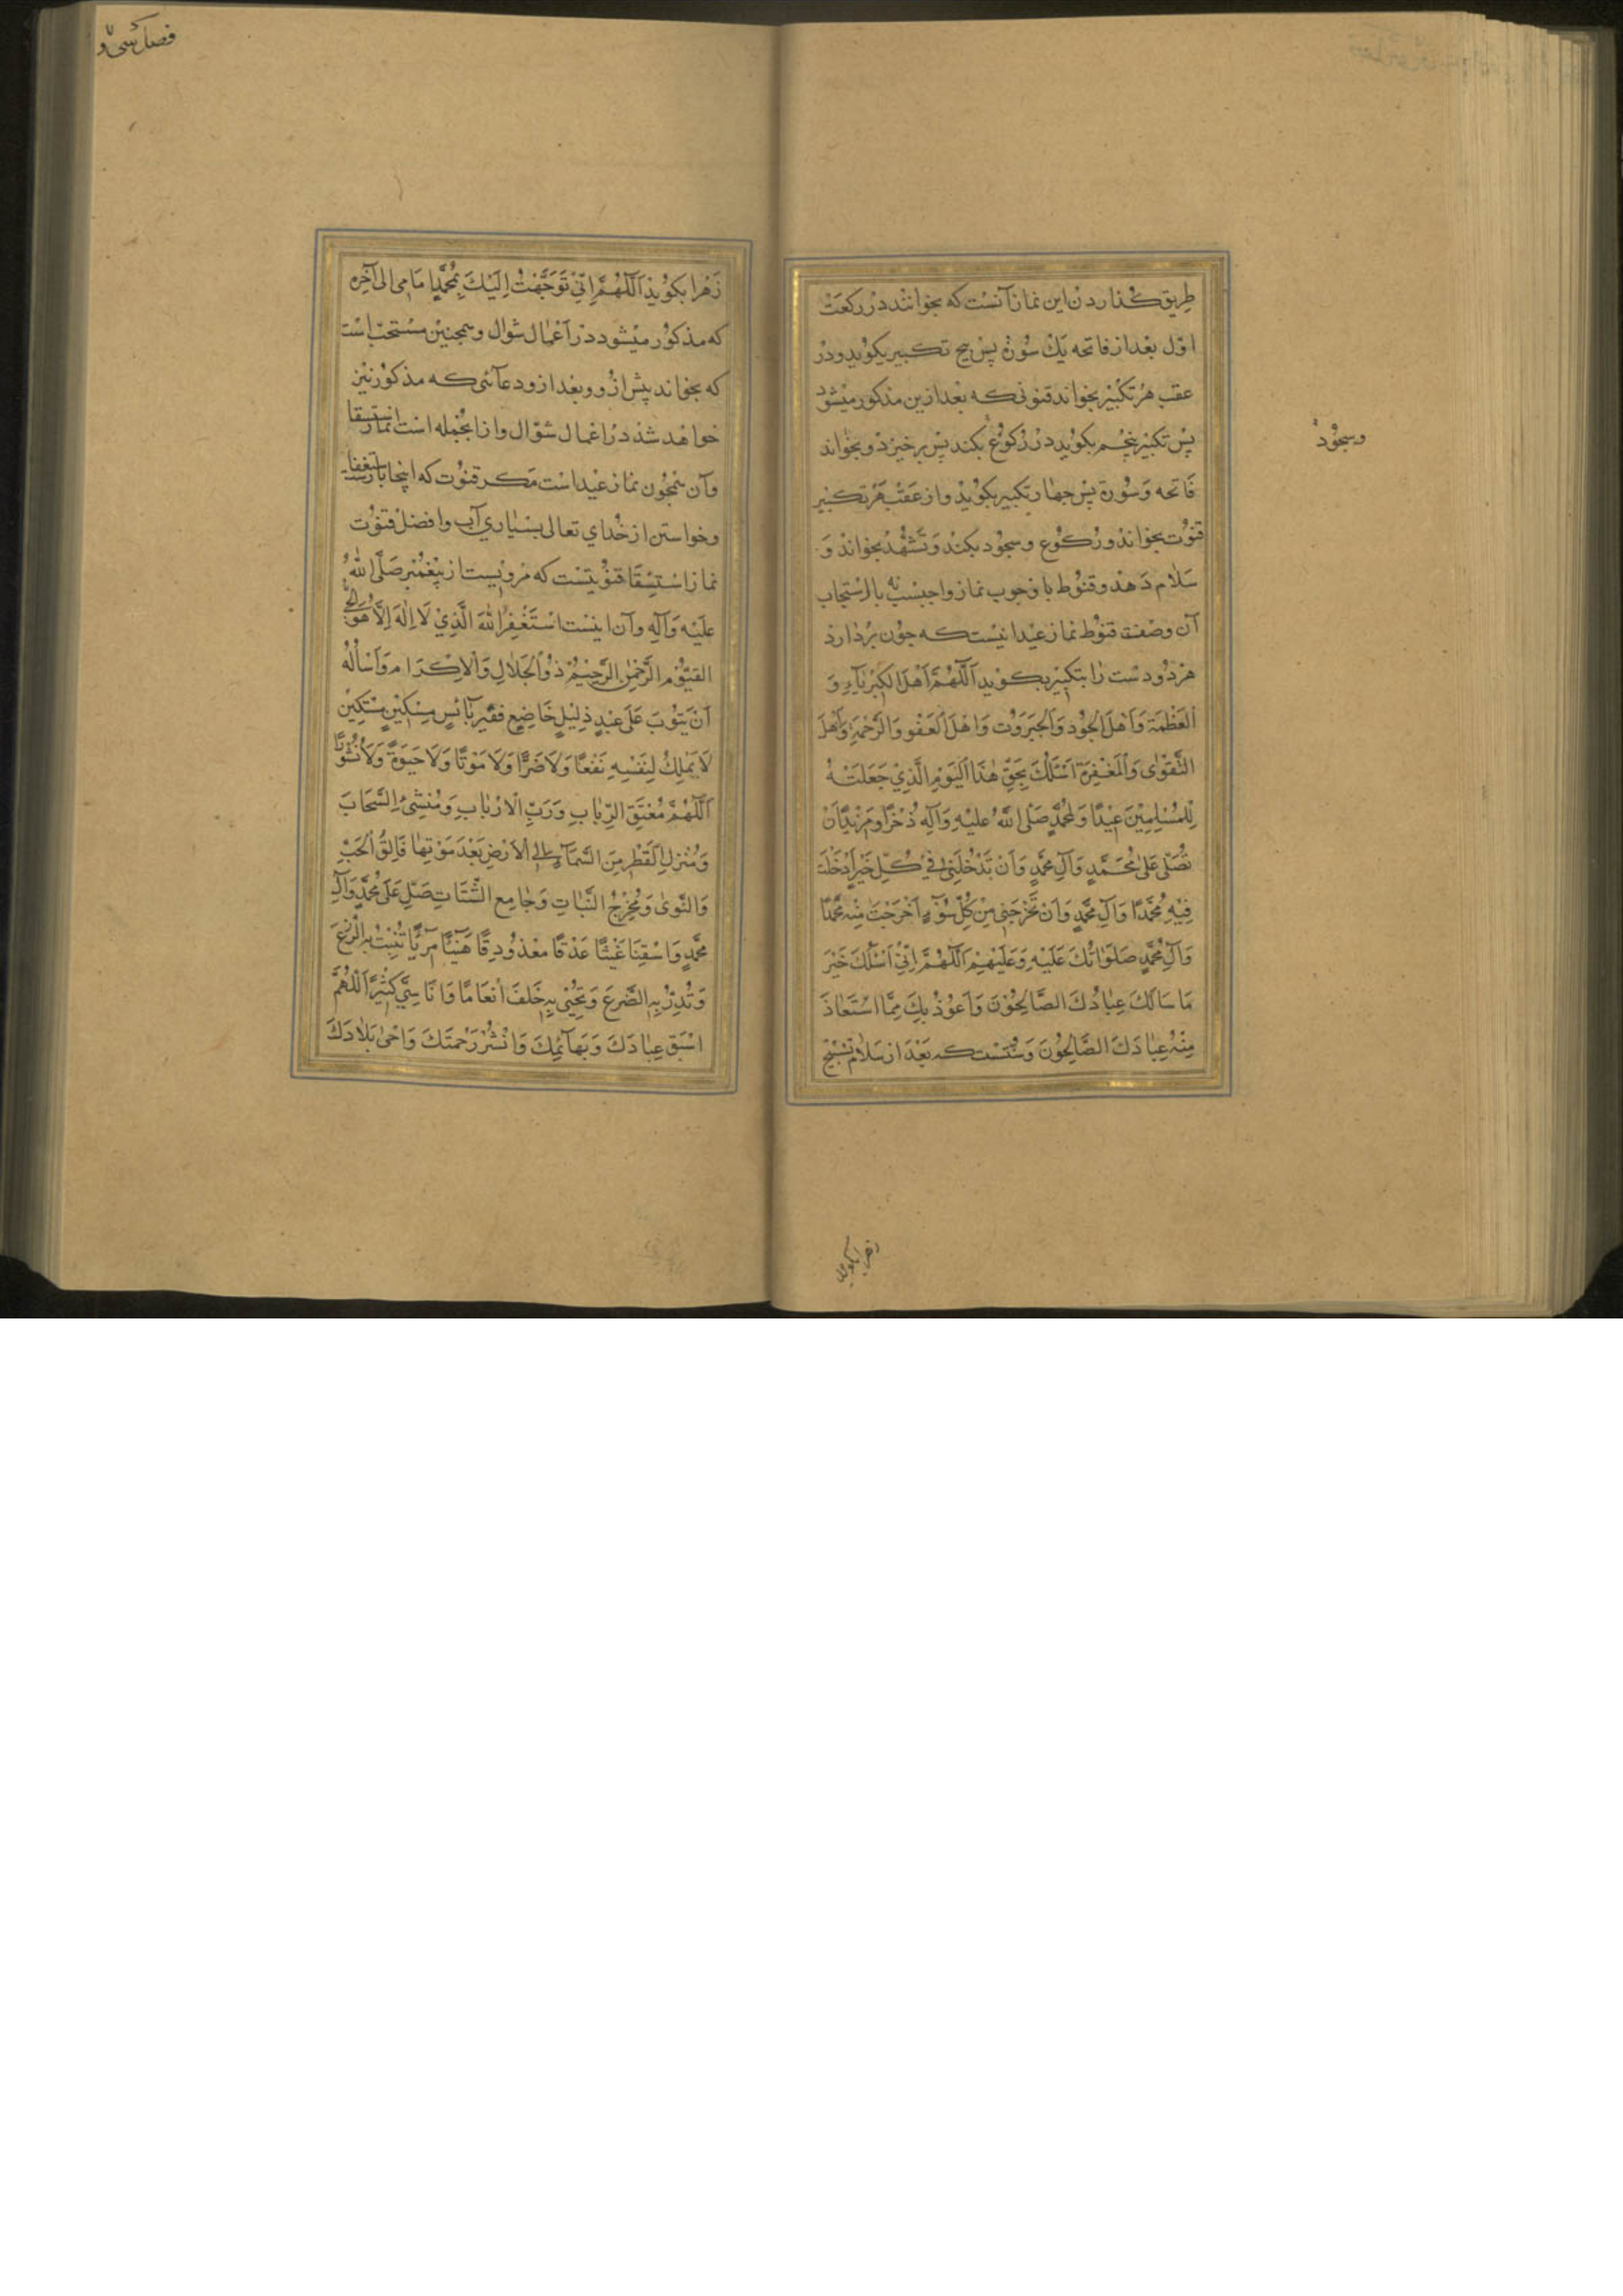 طریق گذاردن این نماز آنست که بخوانند در رکعت
اول بعد از فاتحه یک سوره پس پنج تکبیر بکوید و در
عقب هر تکبیر بخواند قنوتی که بعد ازین مذکور میشود
پس تکبیر پنجم بکوید در رکوع بکند پس برخیزد و بخواند
وسجود
فاتحه و سورة پس چهار تکبیر بکوید و از عقب هر تکبیر
قنوت بخواند و رکوع و سجود بکند و تشهد بخواند و
سلام دهد و قنوط با وجوب نماز واجبست نه بالاستجاب
آن وصفت قنوط نماز عید اینست که چون بردارد
هر دو دست را بتکبیر بکوید اَللّهُمَّ اَهْلَ الْكِبْرِیآءِ وَ
الْعَظَمَةِ وَاَهْلَ الْجُودِ وَالْجَبَرُوتِ وَاَهْلَ الْعَفْوِ وَالرَّحْمَةِ وَاَهْلَ
التَّقْوٰى وَالْمَغْفِرَةِ اَسْئَلُكَ بِحَقِّ هٰذَا الْيَوْمِ الَّذِي جَعَلْتَهُ
لِلْمُسْلِمِيْنَ عِيْدًا وَلِمُحَمَّدٍ صَلَّى اللّٰهُ عَلَيْهِ وَآلِهِ ذُخْرًا وَمَزِيْدًا اَنْ
تُصَلِّيَ عَلٰى مُحَمَّدٍ وَآلِ مُحَمَّدٍ وَاَنْ تُدْخِلَنِى فِي كُلِّ خَيْرٍ اَدْخَلْتَ
فِيْهِ مُحَمَّدًا وَآلَ مُحَمَّدٍ وَاَنْ تُخْرِجَنِى مِنْ كُلِّ سُوْءٍ اَخْرَجْتَ مِنْهُ مُحَمَّدًا
وَآلَ مُحَمَّدٍ صَلَوٰاتُكَ عَلَيْهِ وَعَلَيْهِمْ اَللّٰهُمَّ اِنِّي اَسْئَلُكَ خَيْرَ
مَا سَالَكَ عِبَادُكَ الصَّالِحُوْنَ وَاَعُوْذُ بِكَ مِمَّا اسْتَعَاذَ
مِنْهُ عِبَادَكَ الصَّالِحُوْنَ وَسُنَّتست که بَعْدَ از سَلام تسْبیح
فصل سی و
زهرا بکوید اَللّٰهُمَّ اِنِّي تَوَجَّهْتُ اِلَيْكَ بِمُحَمَّدٍ اِمَامِى الى آخِره
که مذکور میشود در اَعْمال شوال و همچنین مستحب است
که بخواند پیش ازو و بعد ازو دعآئی که مذکور نیز
خواهد شد در اعمال شوال و ازانجمله است نماز استسقا
وآن همچون نماز عید است مکر قنوت که اینجا باستغفار
وخواستن از خدای تعالی بسیاری آب وافضل قنوت
نماز استسقا قنوتیست که مرویست از پیغمبر صَلَّى اللّٰهُ
عَلَيْه وَآلِهِ وآن اینست اَسْتَغْفِرُ اللّٰهَ الَّذِيْ لَا اِلٰهَ اِلَّا هُوَ الحَيُّ
القيُّوْم الرَّحْمٰن الرَّحِيْمُ ذُو الْجَلٰالِ وَالْاِكْرَامِ وَاَسْأَلُهُ
اَنْ يَتُوْبَ عَلَى عَبْدٍ ذَلِيْلٍ خَاضِعٍ فَقِيْرٍ بَآئِسٍ مِسْكِيْنٍ مُسْتَكِيْنٍ
لَا يَمْلِكُ لِنَفْسِهِ نَفْعًا وَلَا ضَرًّا وَلَا مَوْتًا وَلَا حَيَوةً وَلَا نُشُوْرًا
اَللّٰهُمَّ مُعْتِقَ الرِّقَابِ وَرَبَّ الْاَرْبَابِ وَمُنْشِئَ السَّحَابَ
وَمُنْزِلَ الْقَطْرِ مِنَ السَّمَآءِ اِلَى الْاَرْضِ بَعْدَ مَوْتِهَا فَالِقَ الْحَبِّ
وَالنَّوىٰ وَمُخْرِجُ النَّبَاتِ وَجَامِع الشَّتَاتِ صَلِّ عَلَى مُحَمَّدٍ وَآلِ
مُحَمَّدٍ وَاسْقِنَا غَيْثًا غَدَقًا مغدودقًا هَنِيْئًا مَرِيْئًا تُنْبِتُ بِهِ الزَّرْعَ
وَتُدِرُّ بِهِ الضَّرْعَ وَتُحْيِى بِهِ خَلَقَ اَنْعَامًا وَاَنَاسِيَّ كَثِيْرًا اَللّٰهُمَّ
اسْقِ عِبَادَكَ وَبَهَآئِمَكَ وَانْشُرْ رَحْمَتَكَ وَاَحْىِ بَلَادَكَ
زهرا بکوید